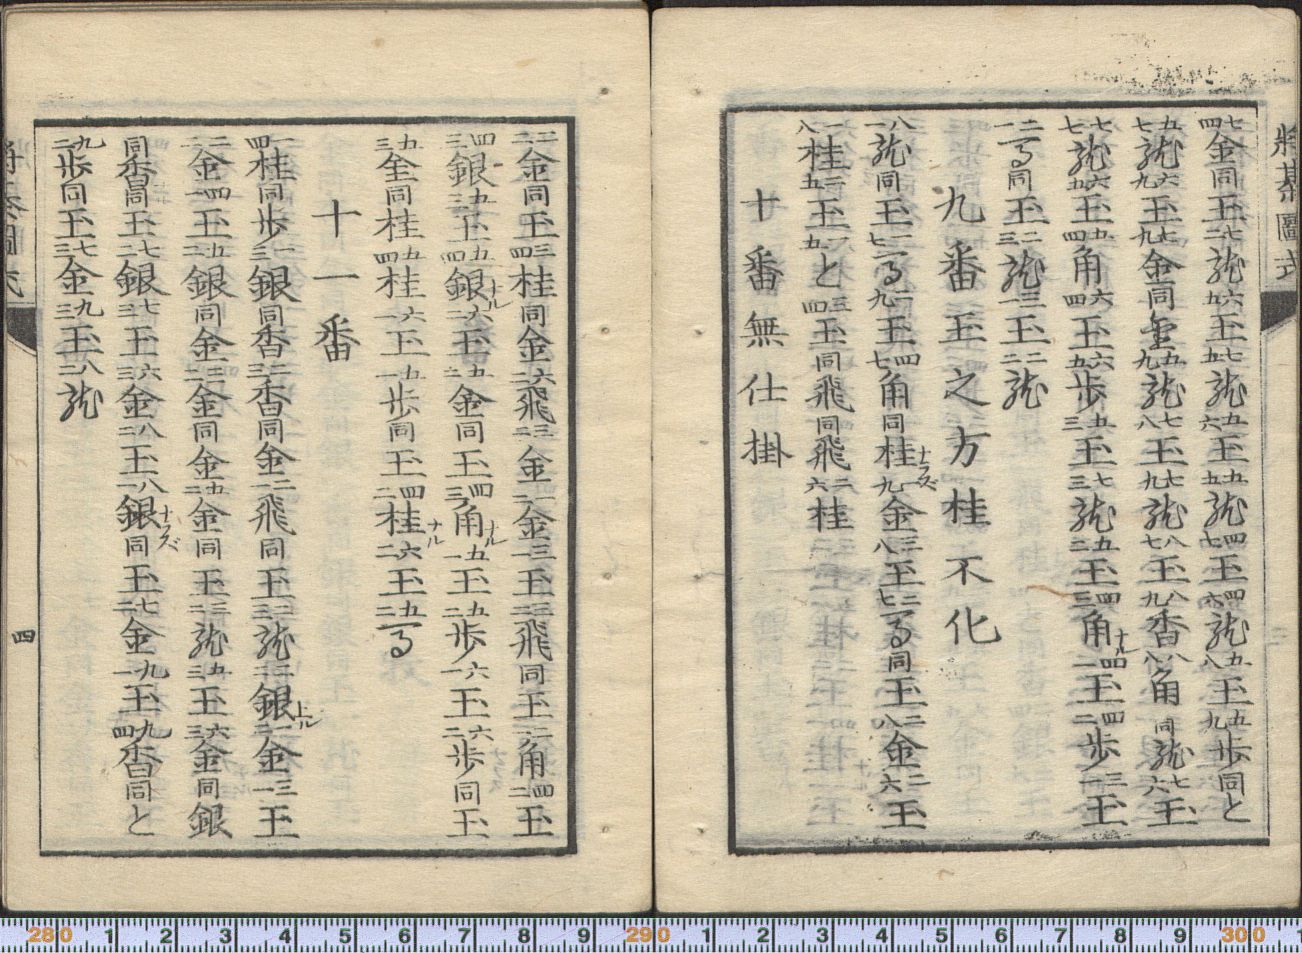 七四金同玉七二龍六九玉七九龍五六玉五九龍四七玉四六龍五八玉五九歩同と
五七龍六九玉七九金同金五九龍七八玉七九龍八七玉八九香八八角同龍七六玉
七七龍六五玉五四角六四玉六九歩五三玉七三龍五二玉四三角ナル四二玉四二歩三一玉
二一馬同玉二三龍三一玉二二龍
九番玉之方桂不化
八一龍同玉一七馬一九玉四七角同桂ナラズ九金三八玉二七馬同玉二八金二六玉
一八桂三五玉五と三四玉同飛同飛二六桂
十番無仕掛
二二金同玉三四桂同金六二飛三二金二二金三一玉三二飛同玉二二角四二玉
四三銀五二玉五四銀ナル六一玉五二金同玉四三角ナル五一玉五二歩六一玉六二歩同玉
五三金同桂五四桂六一玉五一歩同玉四二桂ナル六二玉五二馬
十一番
一四桂同歩一三銀同香二三香同金二一飛同玉三二龍三二銀上ル二一金三一玉
二二金四一玉五二銀同金三二金同金五二金同玉三二龍五三玉六三金同銀
同香昌同玉七二銀七三玉六三金八二玉八一銀ナラズ同玉七二金九一玉九四香同と
九二歩同玉七三金九三玉八二龍
將棊圖式
四